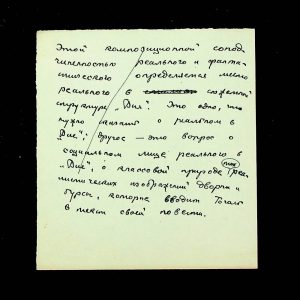 Этой композиционной сопод-
чиненностью реального и фанта-
стического определяется место
реального в сюжетной
структуре „Вия". Это одно, что
нужно сказать о реальном в
„Вие"; другое – это вопрос о
социальном лице реального в
„Вие", о классовой природе тех реа-
листических изображений дворни и
бурсы, которые вводит Гоголь
в текст своей повести.